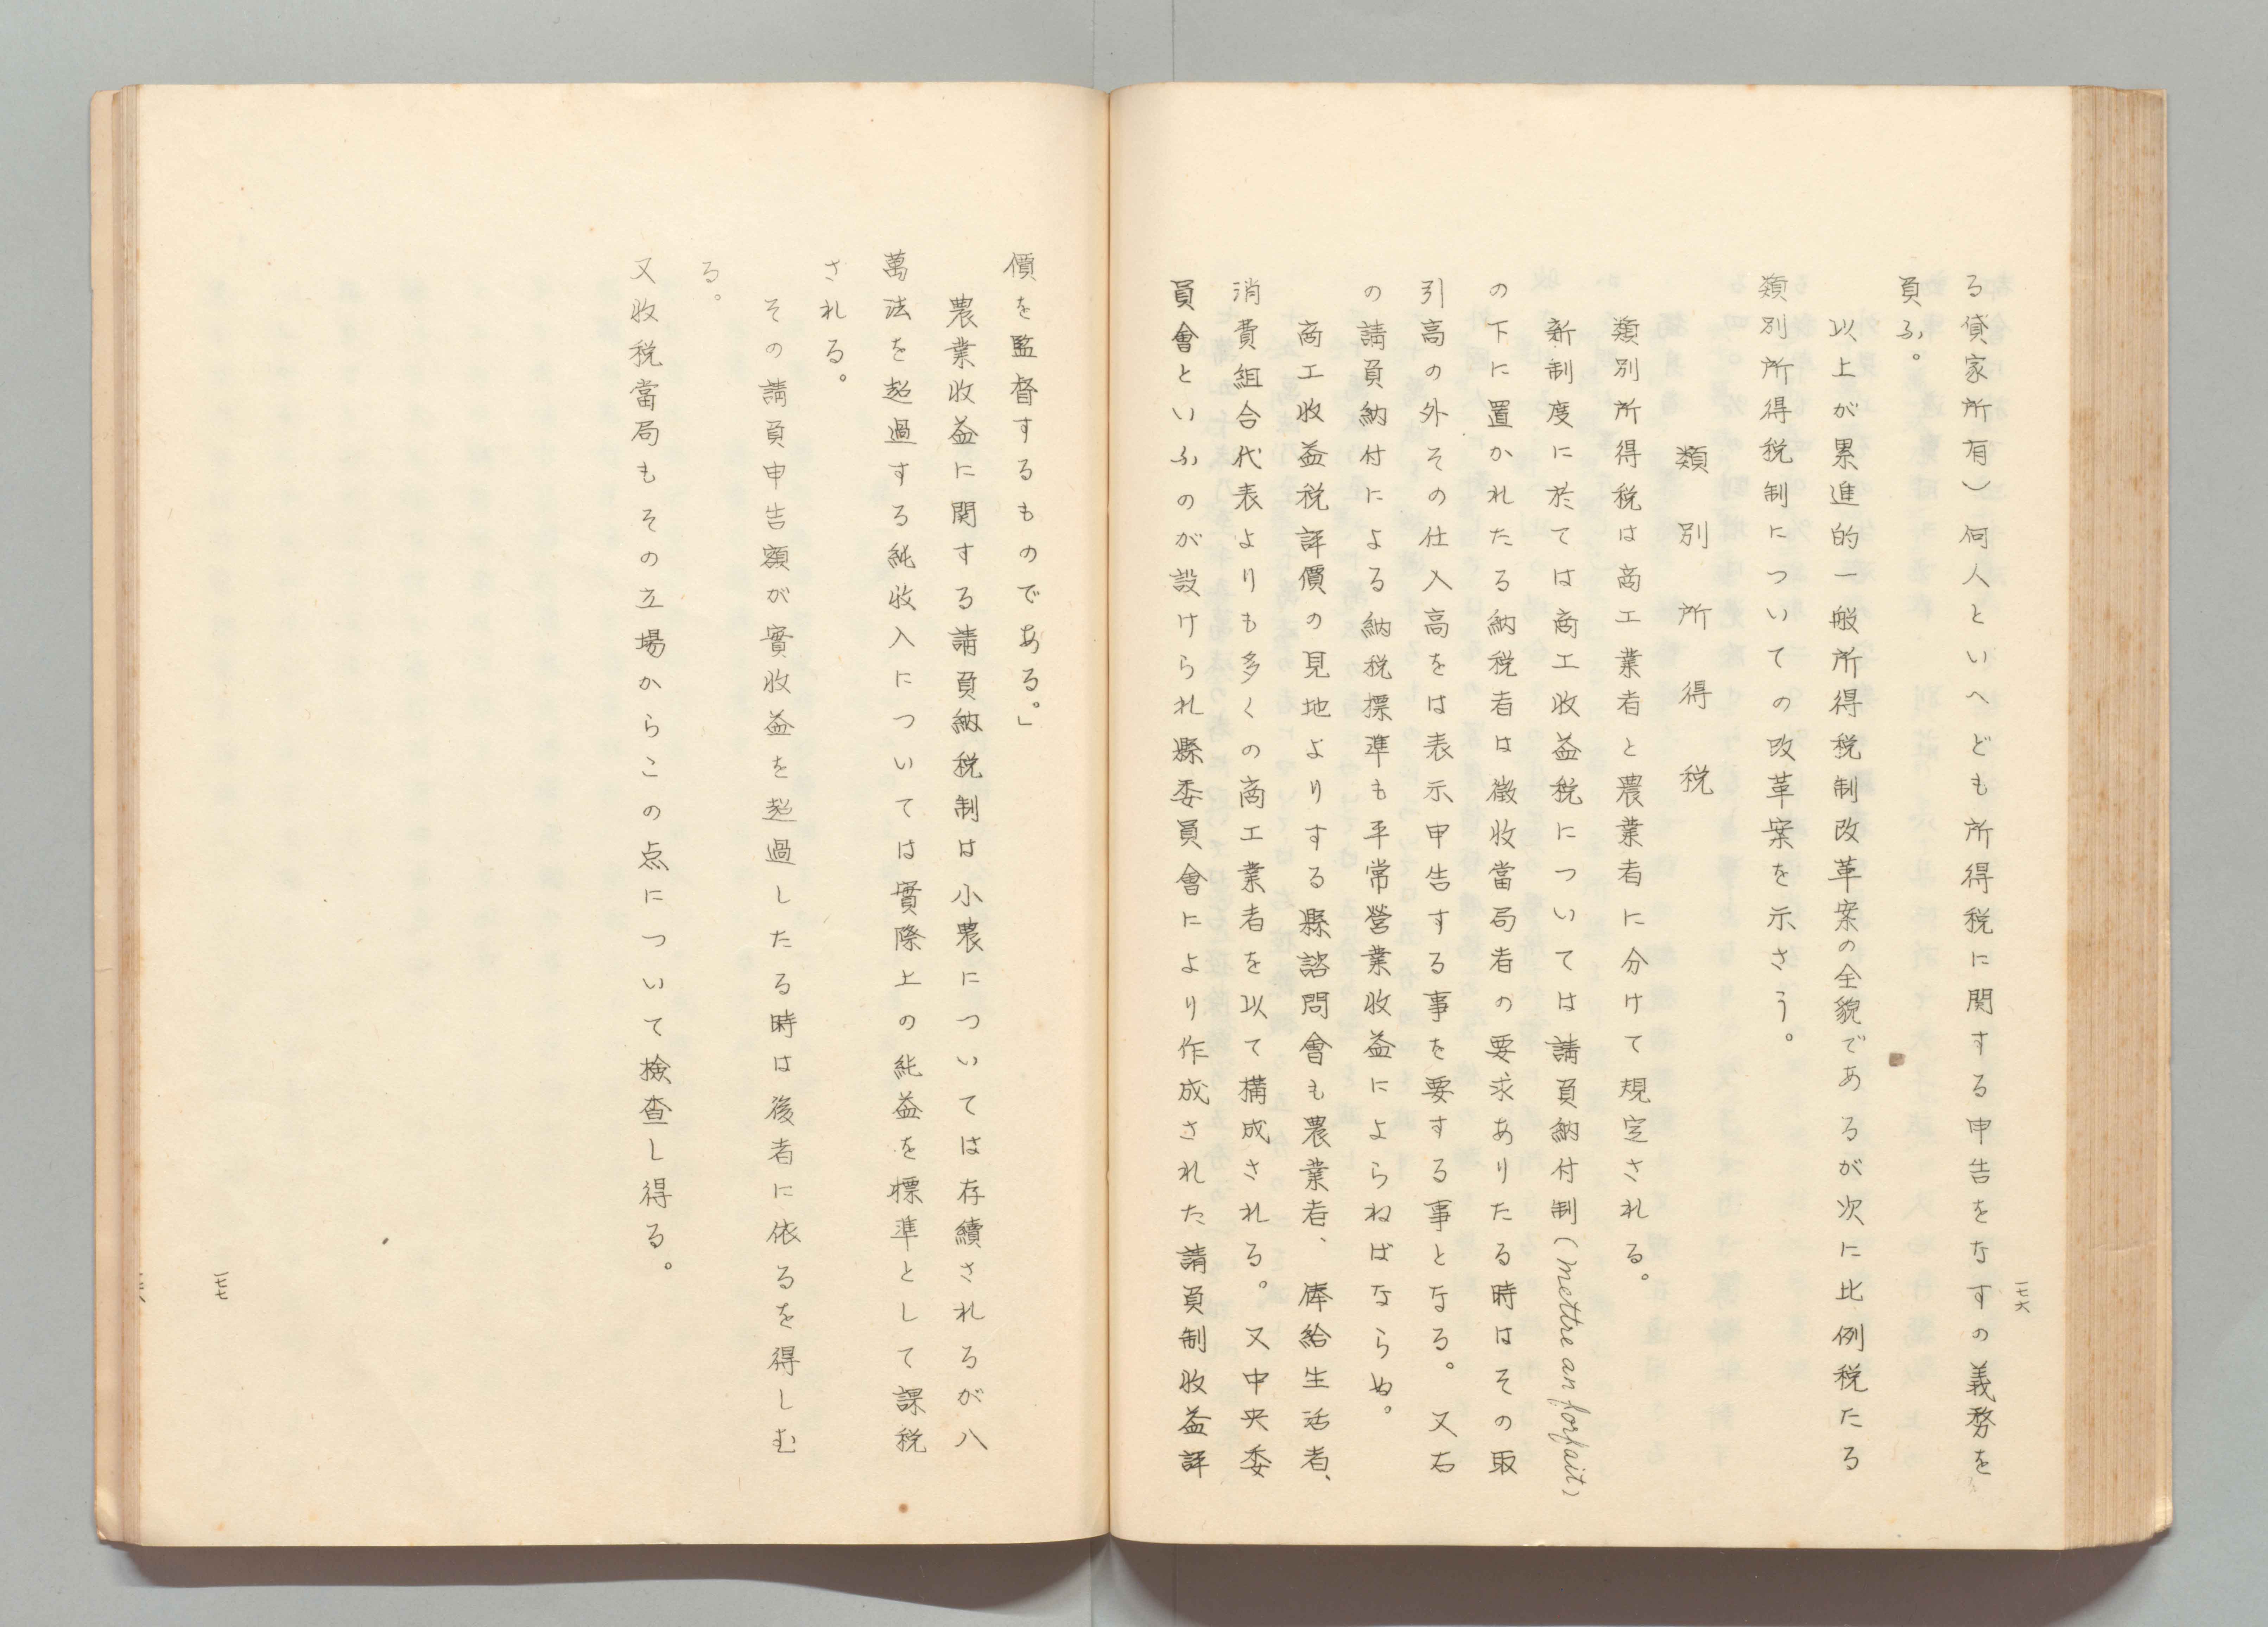 る貸家所有)何人といへども所得税に関する申告をなすの義務を
負ふ。
以上が累進的一般所得税制改革案の全貌であるが次に比例税たる
類別所得税制についての改革案を示さう。
類別所得税
類別所得税は商工業者と農業者に分けて規定される。
新制度に於ては商工收益税については請負納付制(mettre an forfait)
の下に置かれたる納税者は徴收當局者の要求ありたる時はその取
引高の外その仕入高をは表示申告する事を要する事となる。又右
の請負納付による納税標準も平常營業收益によらねばならぬ。
商工收益税評價の見地よりする縣諮問會も農業者、俸給生活者、
消費組合代表よりも多くの商工業者を以て構成される。又中央委
員會といふのが設けられ縣委員會により作成された請負制收益評
一七六
價を監督するものである。」
農業收益に関する請負納税制は小農については存續されるが八
萬法を超過する純收入については實際上の純益を標準として課税
される。
その請負申告額が實收益を超過したる時は後者に依るを得しむ
る。
又收税當局もその立場からこの点について検査し得る。
一七七